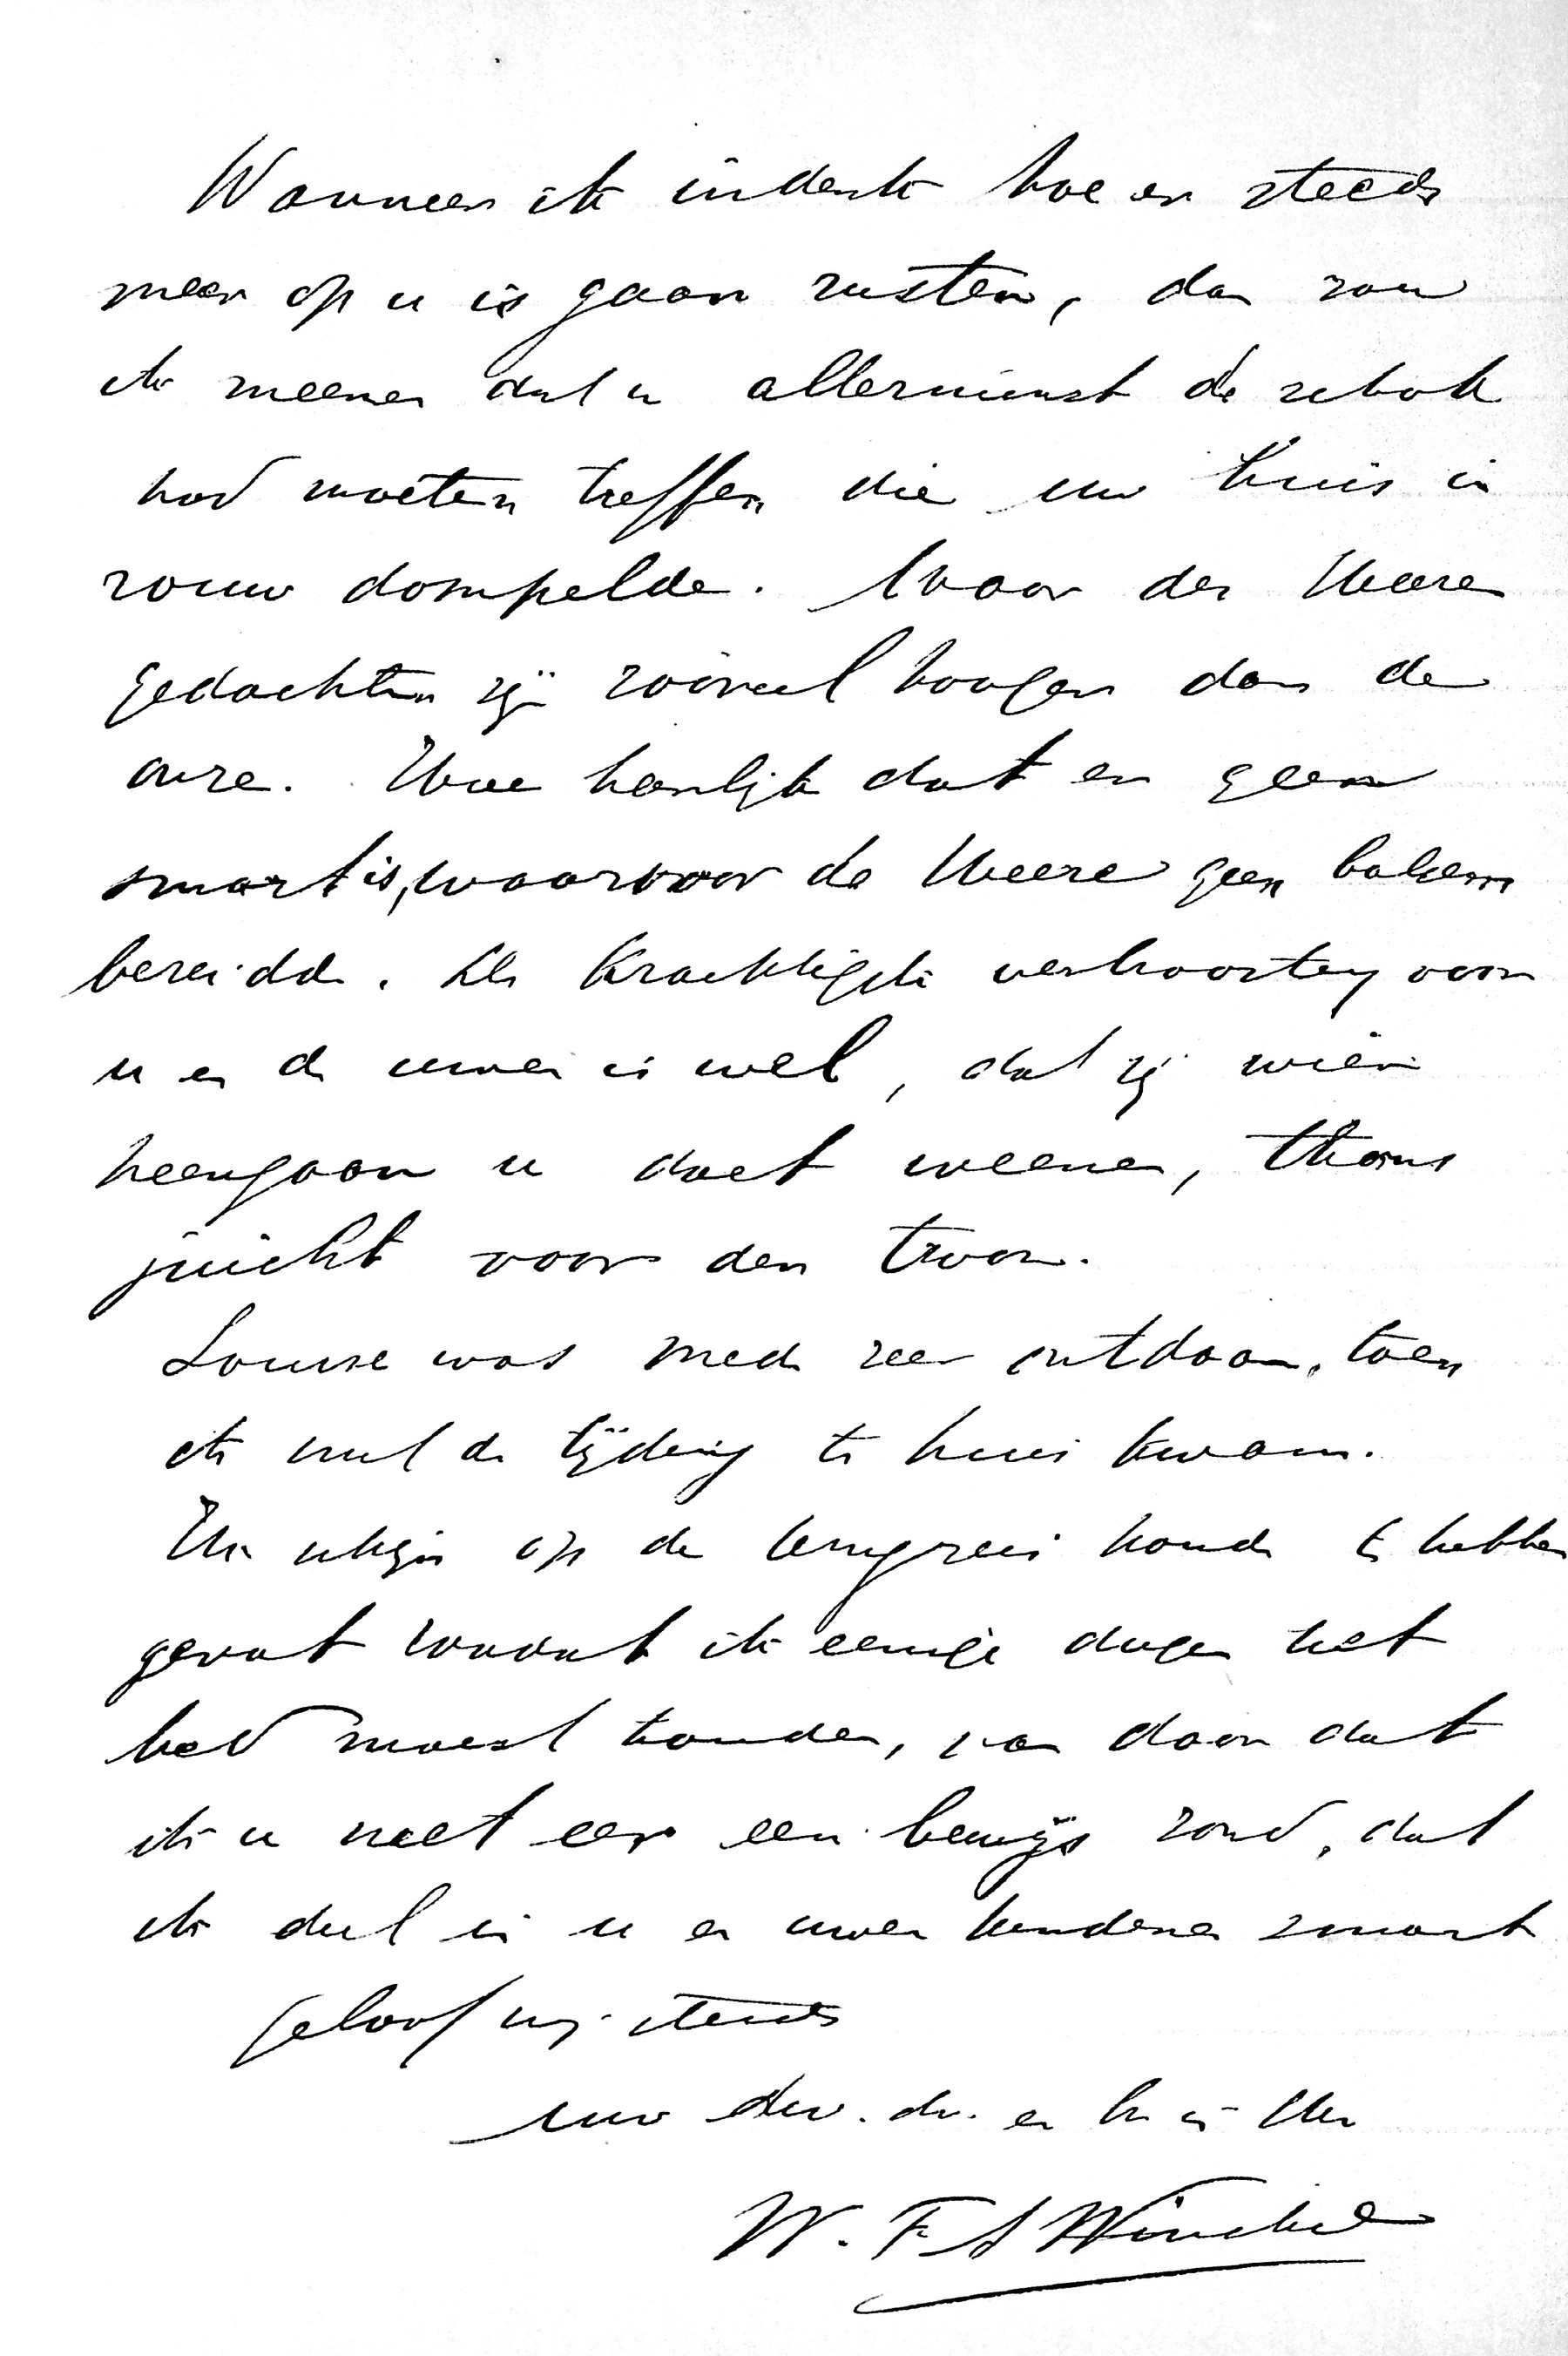 Wanneer ik indenk hoe er steeds
meer op u is gaan rusten, dan zou
ik meenen dat u allerminst de schok
had moeten treffen die uw huis in
rouw dompelde. Maar des Heeren
gedachten zijn zooveel hooger dan de
onze. Hoe heerlijk dat er geen
smart is, waarvoor de Heere geen balsem
bereidde. De krachtigste vertroosting voor
u en de uwen is wel, dat zij wier
heengaan u doet weenen, thans
juicht voor den troon.
Louise was mede zeer ontdaan, toen
ik met de tijding te huis kwam.
Ik schijn op de terugreis koude te hebben
gevat zoodat ik eenige dagen het
bed moest houden, van daar dat
ik u niet eer een bewijs zond, dat
ik deel in u en uwer kinderen smart
Geloof mij steeds
uw dw. dr. en br in den
W. F. A Winckel